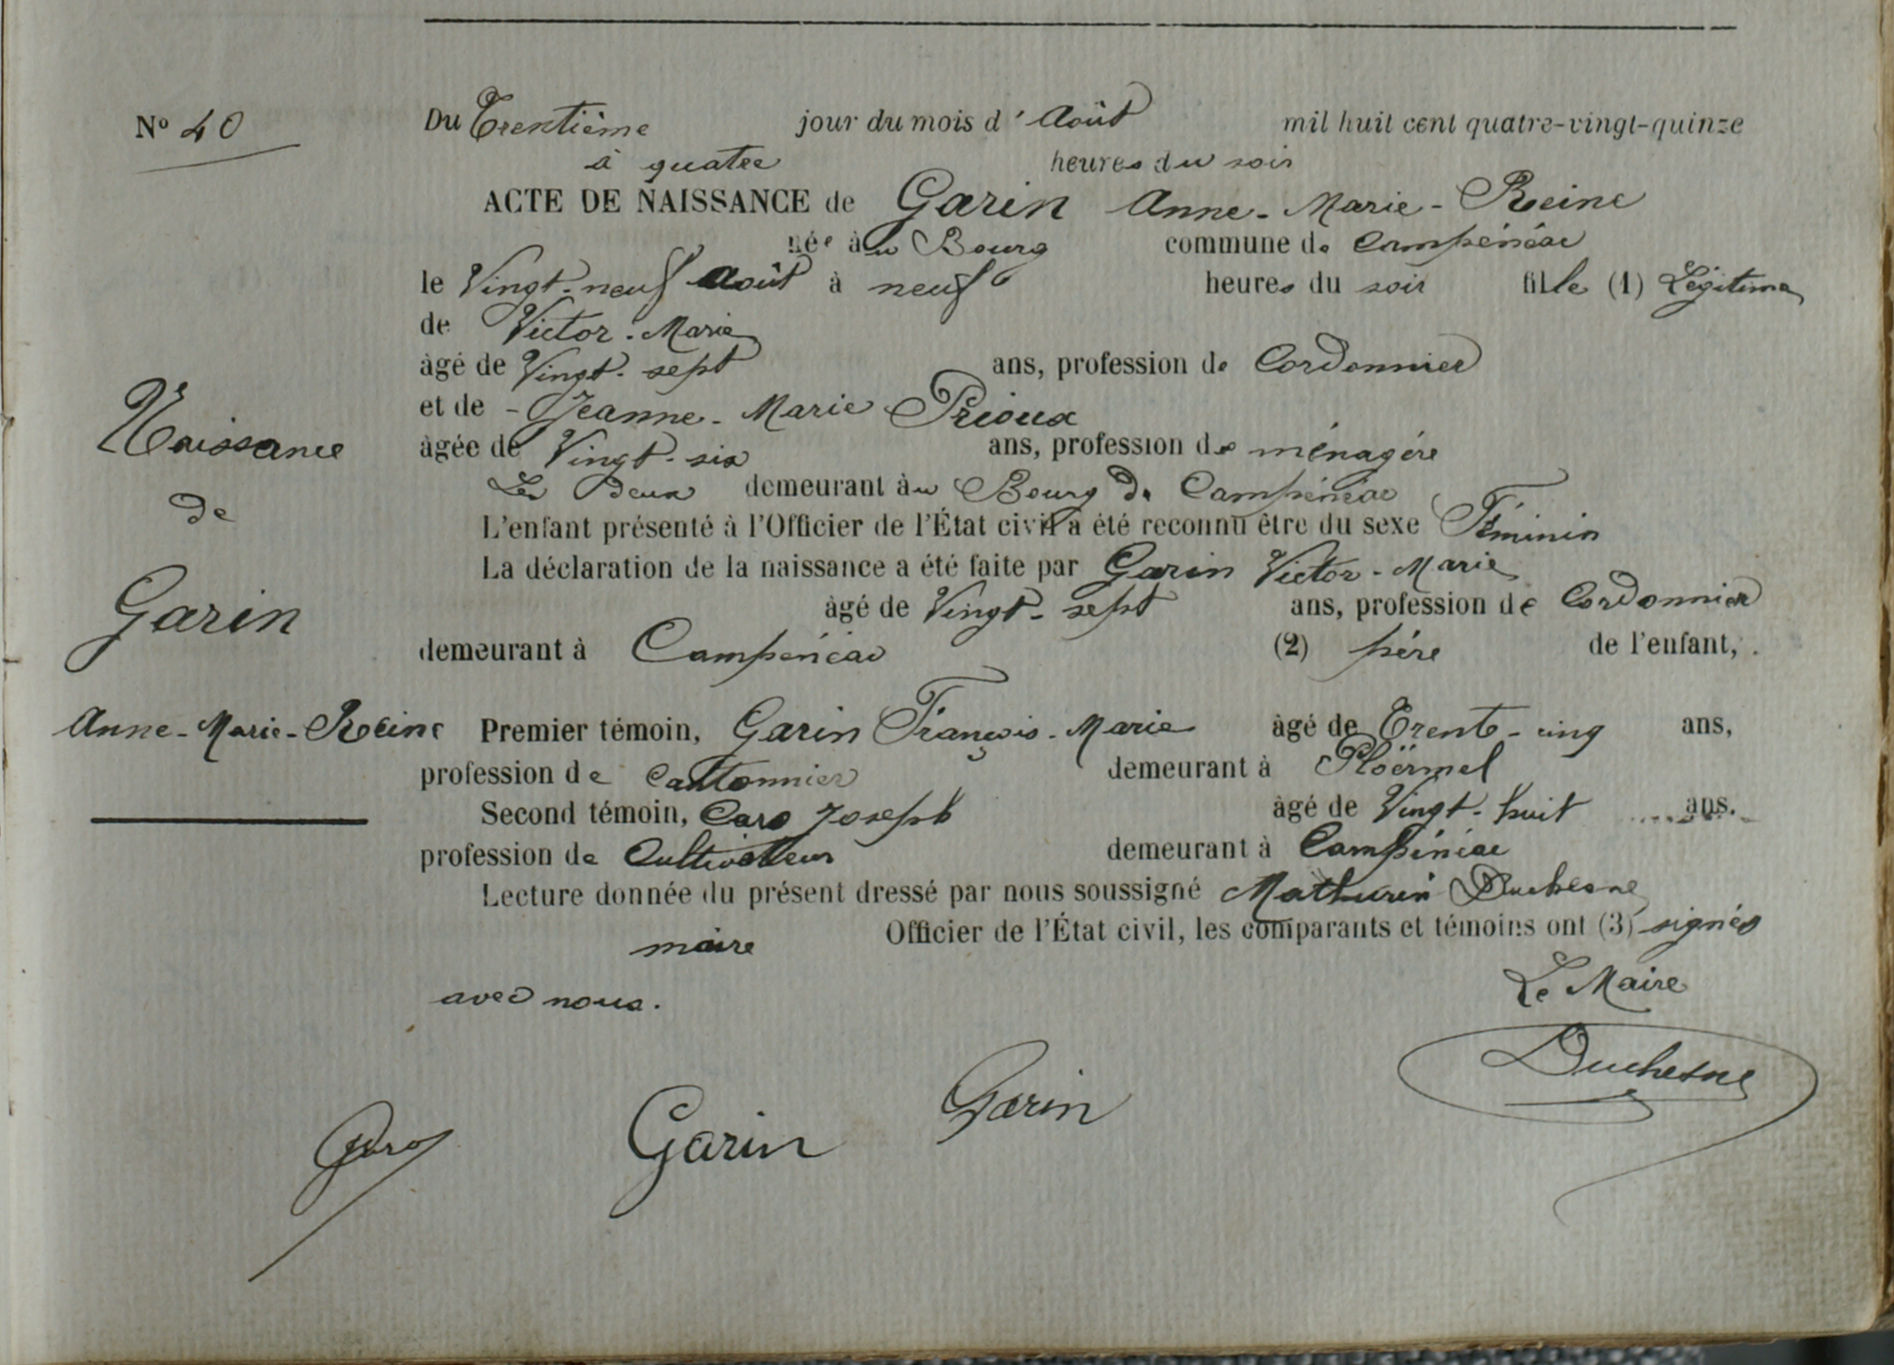 N° 40
Du Trentième jour du mois d'Août mil huit cent quatre-vingt-quinze
à quatre heures du soir
ACTE DE NAISSANCE de Garin Anne-Marie-Reine
née au Bourg commune de Campénéac
le Vingt-neuf Août à neuf heures du soir fille (1) Légitime
de Victor-Marie
âgé de Vingt-sept ans, profession de Cordonnier
et de - Jeanne-Marie Prioux
âgée de Vingt-six ans, profession de ménagère
Les Deux demeurant au Bourg de Campénéac
L'enfant présenté à l'Officier de l'État civil a été reconnu être du sexe Féminin
La déclaration de la naissance a été faite par Garin Victor-Marie
âgé de Vingt-sept ans, profession de Cordonnier
demeurant à Campénéac (2) père de l'enfant,
Premier témoin, Garin François-Marie âgé de Trente-cinq ans,
profession de cantonnier demeurant à Ploërmel
Second témoin, Caro Joseph âgé de Vingt-huit ans.
profession de Cultivateur demeurant à Campénéac
Lecture donnée du présent dressé par nous soussigné Mathurin Duchesne
maire Officier de l'État civil, les comparants et témoins ont (3) signés
avec nous.
Le Maire
Duchesne
Garin
Garin
Caro
Naissance
de
Garin
Anne-Marie-Reine